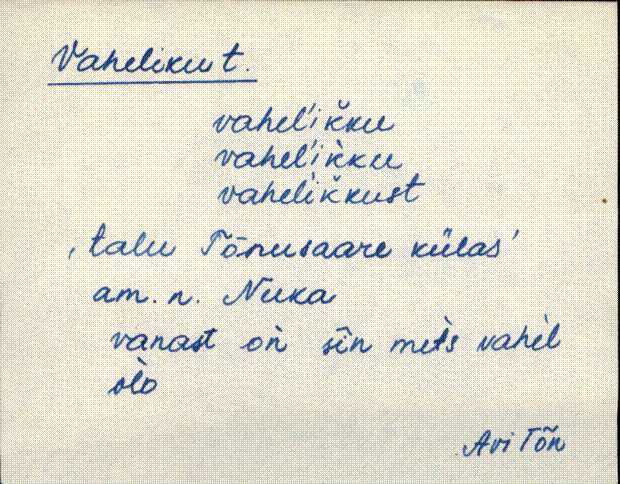 Vahelikut.
vahel'ik̆ku
vahel'ik̀ku
vahelik̆kust
'talu Tõnusaare külas'
am. n. Nuka
vanast on̆ sīn met̀s vahel
olo
Avi Tõn